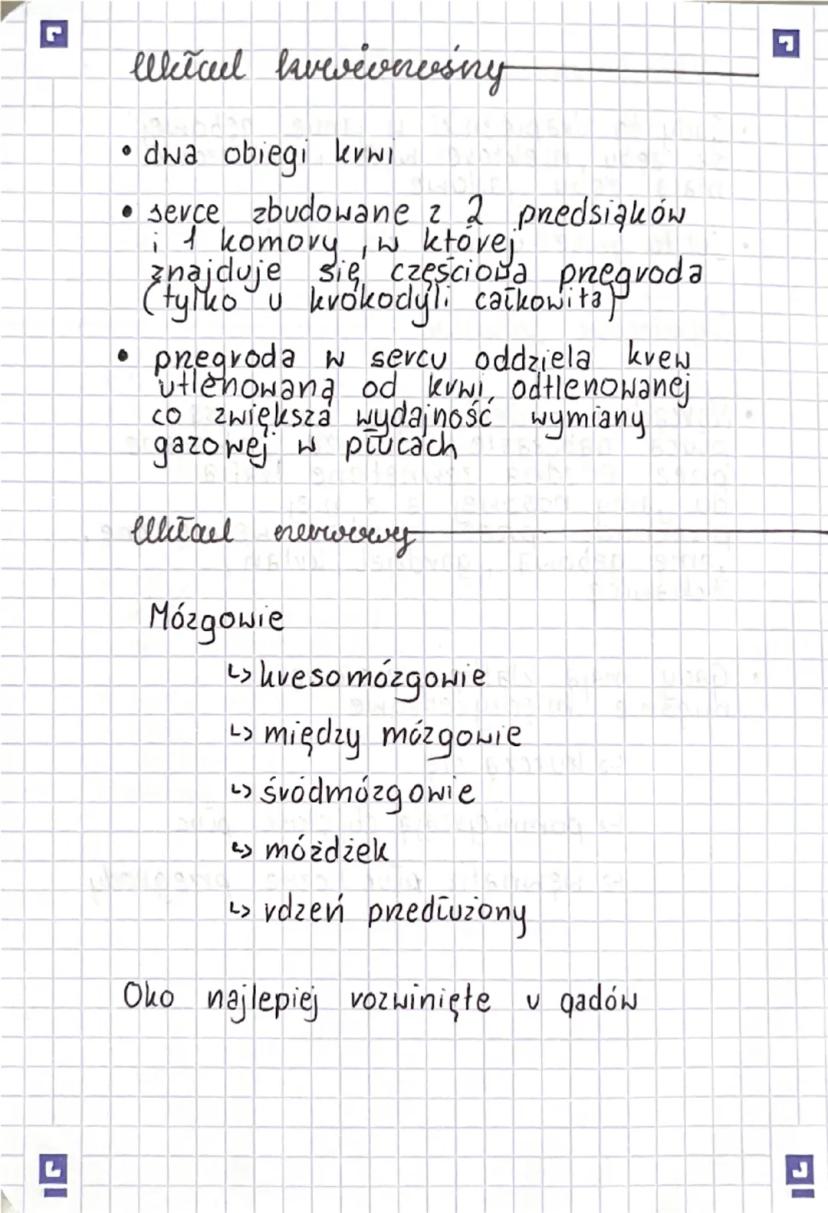 Układ krwionośny
• dwa obiegi krwi
• serce zbudowane z 2 przedsiąków
i 1 komory, w której
znajduje się częściowa przegroda
(tylko u krokodyli całkowita)
• przegroda w sercu oddziela krew
utlenowaną od krwi odtlenowanej
co zwiększa wydajność wymiany
gazowej w płucach
Układ nerwowy
Mózgowie
↳ kresomózgowie
↳ między mózgowie
↳ śródmózgowie
↳ móżdżek
↳ rdzeń przedłużony
Oko najlepiej rozwinięte u gadów